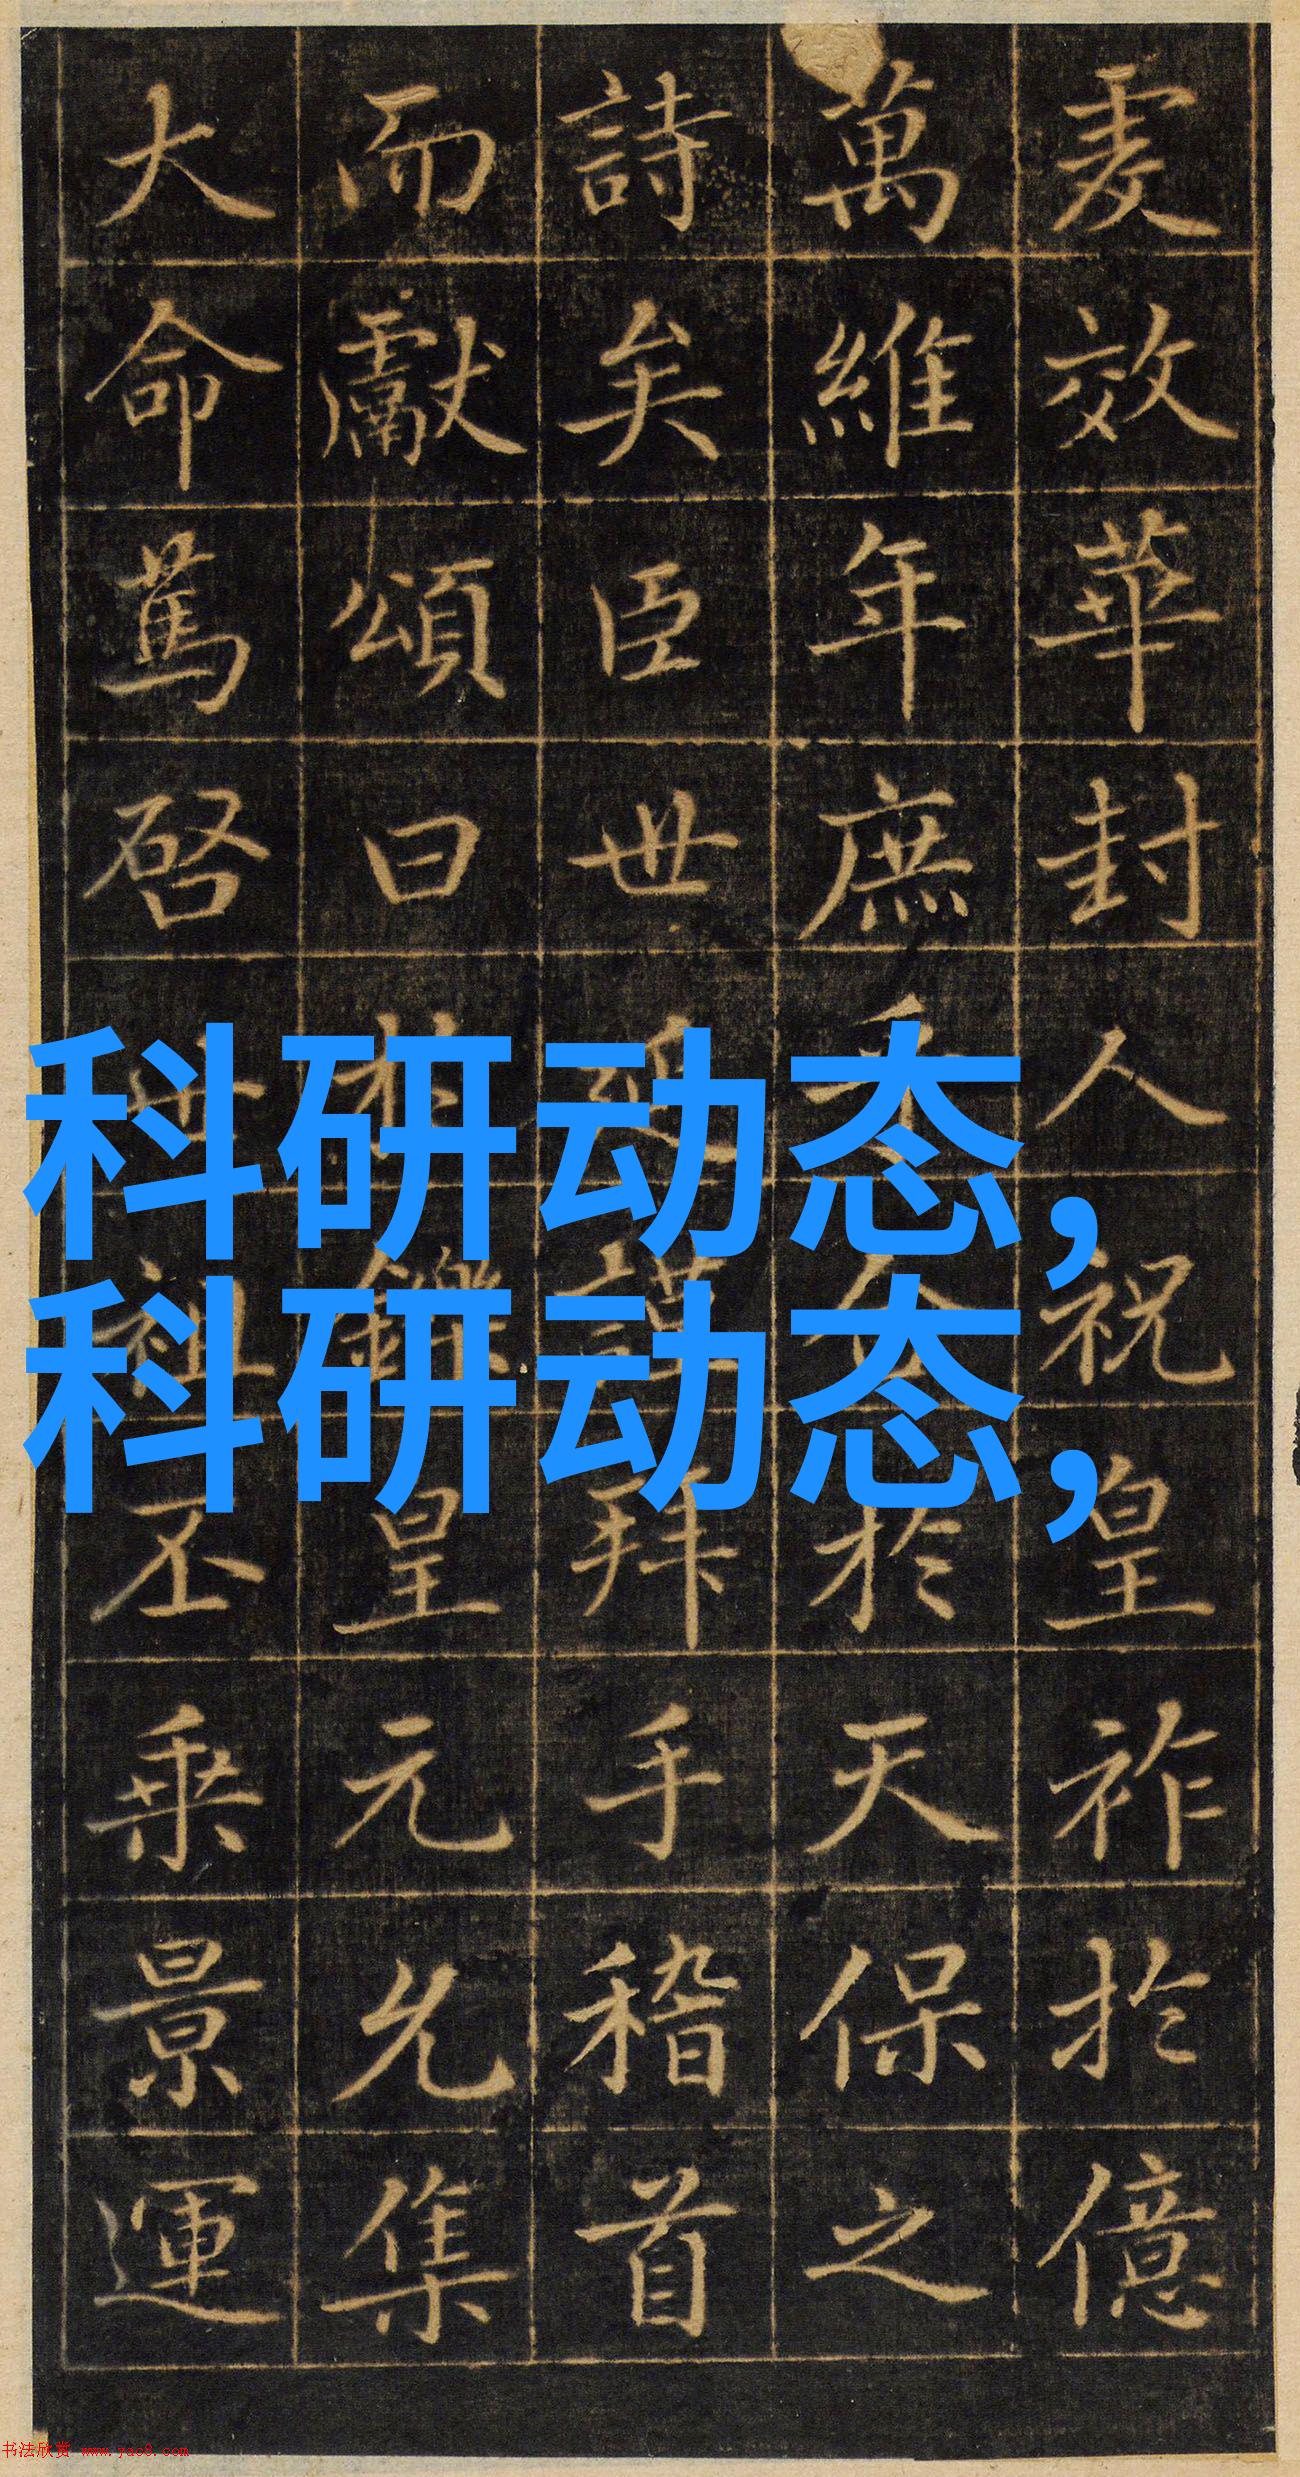 夌效華封人祝皇祚於億
萬維年庶於天保之
詩矣臣世拜手稽首
而獻頌曰皇元允集
大命篤啓丕乘景運
科研动态,
科研动态,
书法欣赏 www.yac8.com